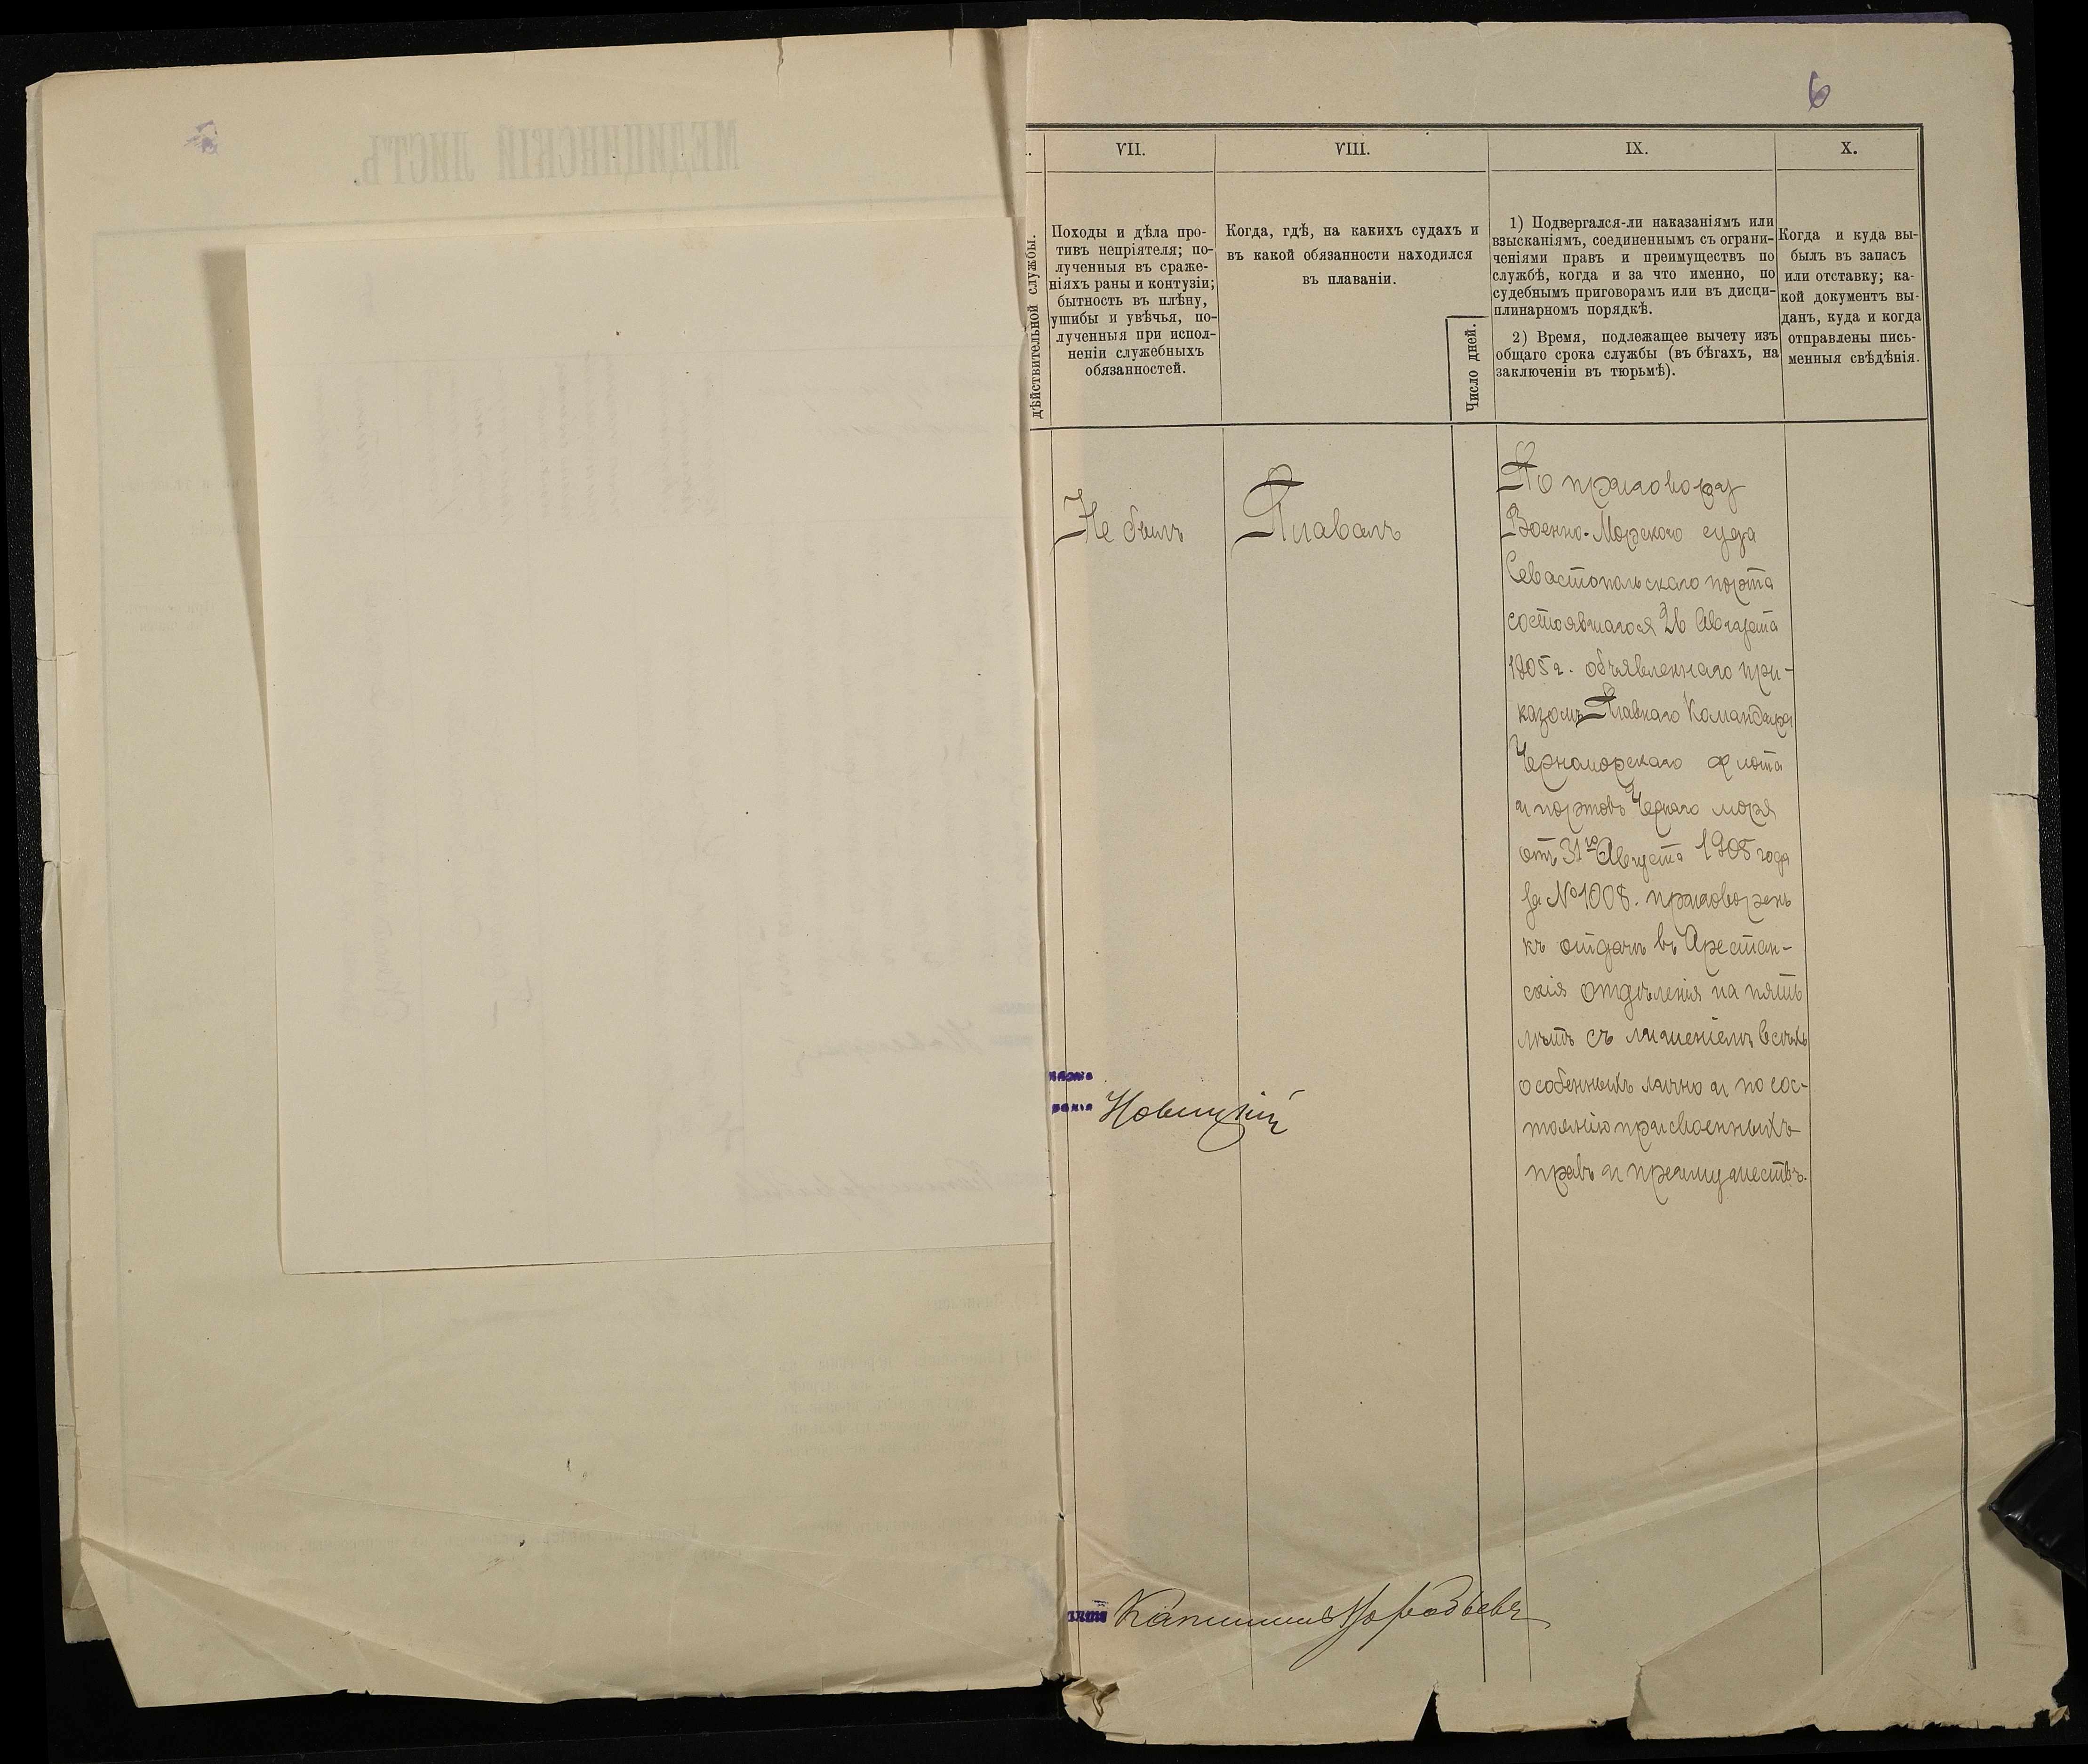 6
VII.
VIII.
IX.
X.
дѣйствительной службы.
Походы и дѣла про-
тивъ непріятеля; по-
лученныя въ сраже-
ніяхъ раны и контузіи;
бытность въ плѣну,
ушибы и увѣчья, по-
лученныя при испол-
неніи служебныхъ
обязанностей.
Когда, гдѣ, на какихъ судахъ и
въ какой обязанности находился
въ плаваніи.
Число дней.
1) Подвергался-ли наказаніямъ или
взысканіямъ, соединеннымъ съ ограни-
ченіями правъ и преимуществъ по
службѣ, когда и за что именно, по
судебнымъ приговорамъ или въ дисци-
плинарномъ порядкѣ.
2) Время, подлежащее вычету изъ
общаго срока службы (въ бѣгахъ, на
заключеніи въ тюрьмѣ).
Когда и куда вы-
былъ въ запасъ
или отставку; ка-
кой документъ вы-
данъ, куда и когда
отправлены пись-
менныя свѣдѣнія.
Не былъ
Плавалъ
По приговору
Военно-Морского суда
Севастопольскаго порта
состоявшагося 26 Августа
1905 г. объявленнаго при-
казомъ Главнаго Командира
Черноморскаго флота
и портовъ Чернаго моря
отъ 31го Августа 1905 года
за № 1008. приговоренъ
къ отдачѣ въ Арестан-
скія отдѣленія на пять
лѣтъ съ лишеніемъ всѣхъ
особенныхъ лично и по сос-
тоянію присвоенныхъ
правъ и преимуществъ.
Новицкій
Капитанъ
МЕДИЦИНСКІЙ ЛИСТЪ.